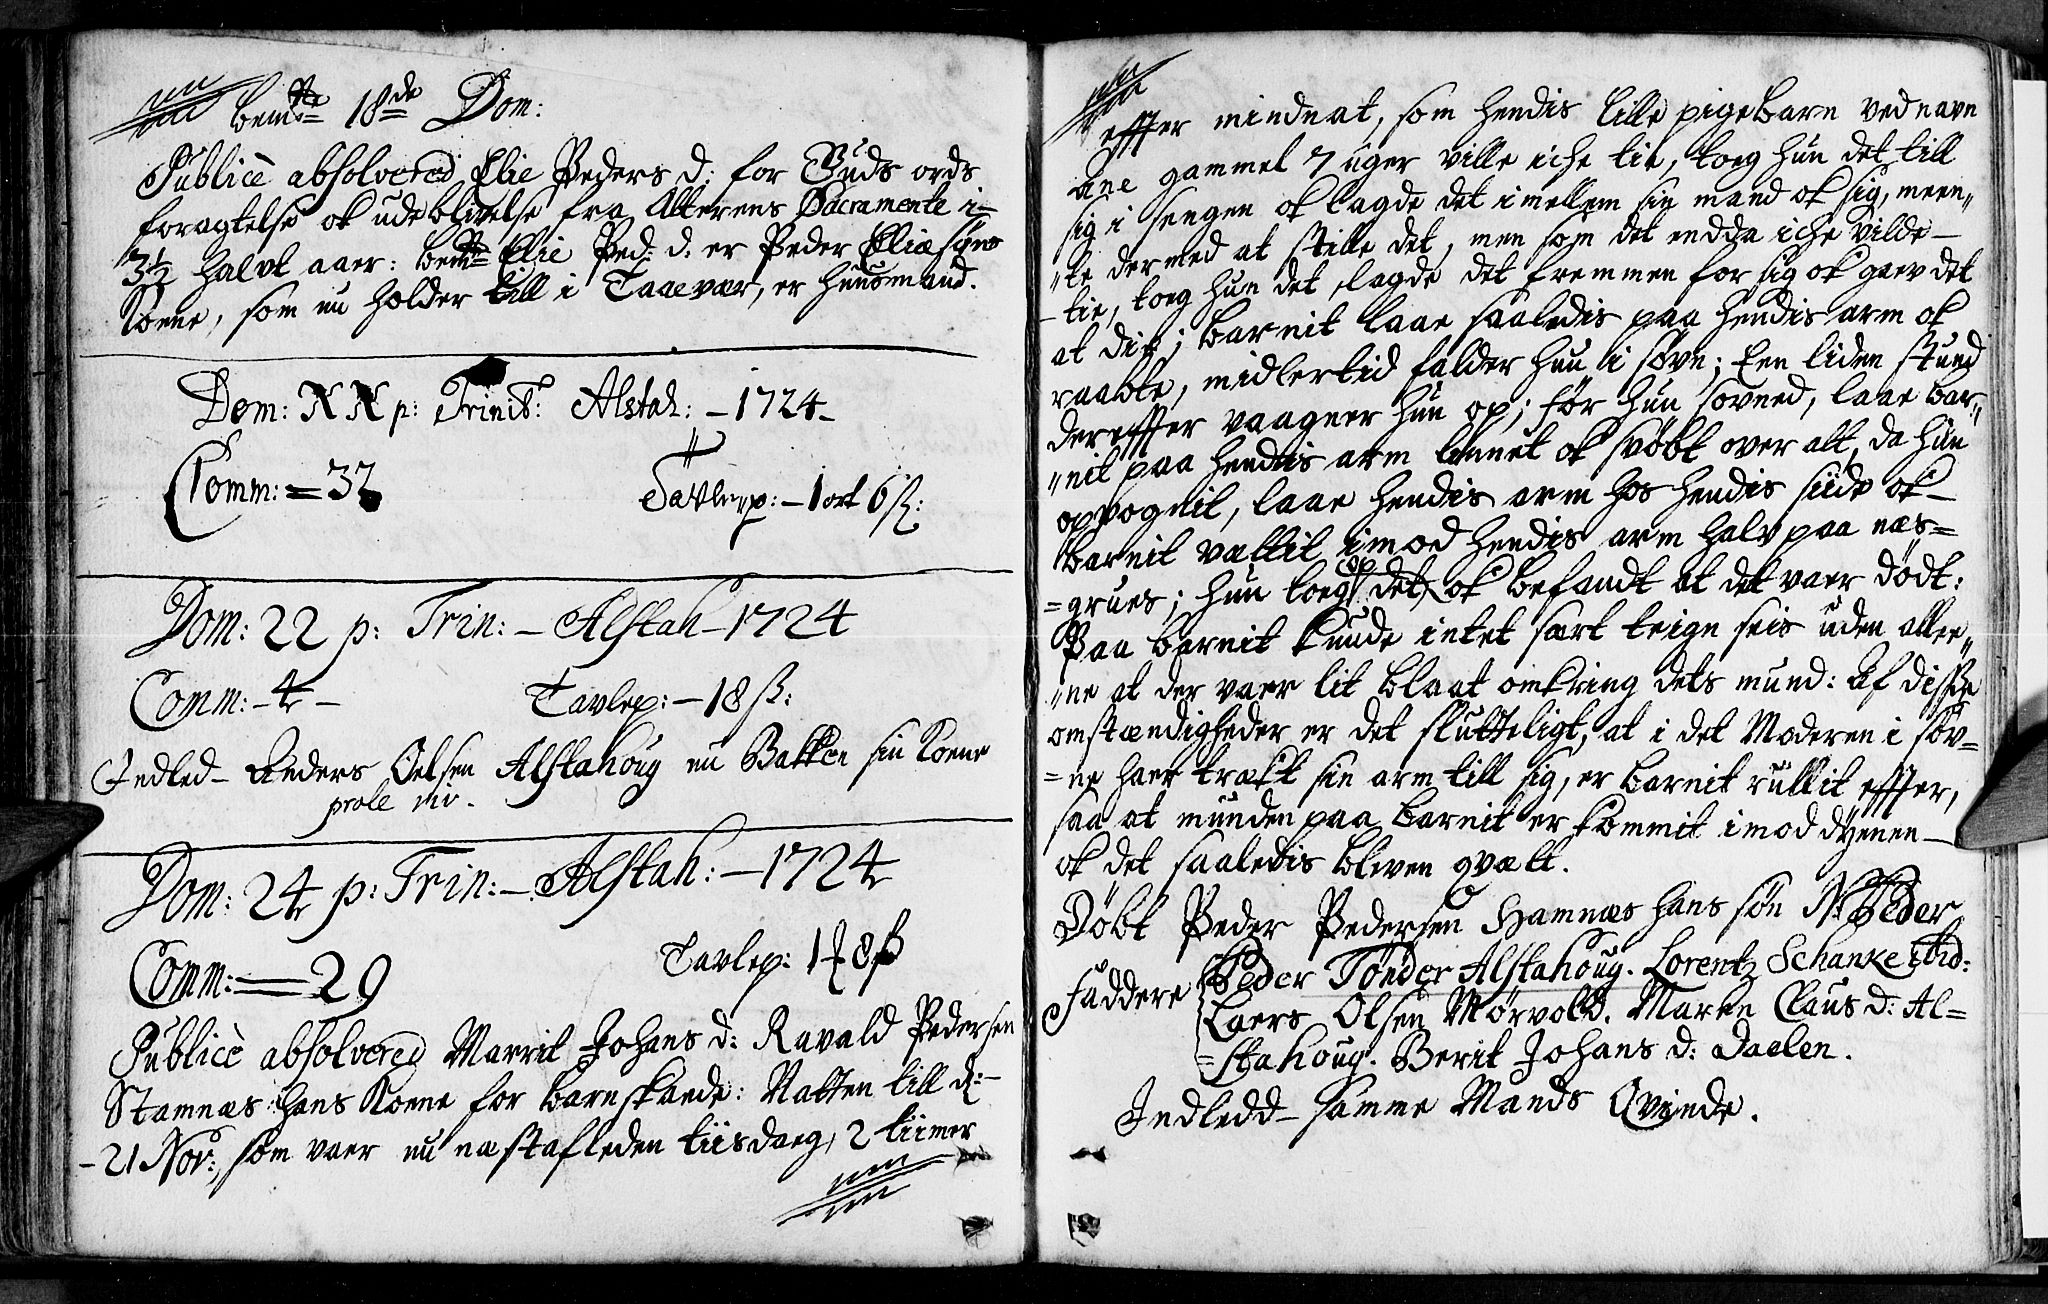 bem:te 18de Dom:
Publicè absolvered Elie Peders d: for Guds ords
foragtelse ok udeblivelse fra Alterens Sacramente i-
3½ halvt aaer: bem:te Elie Ped: d: er Peder Eliæsøns
Koene, som nu holder till i Taaevær, er huusmand.
Dom: XX p: Trinit: Alstah: - 1724 -
Comm: = 32
Tavlep: - 1 ort 6 ß:
Dom: 22 p: Trin: - Alstah - 1724
Comm: - 4 -
Tavlep: - 18 ß:
Indled - Anders Oelsen Alstahoug nu Bakken sin Koene
prole viv.
Dom: 24 p: Trin: - Alstah: - 1724
Comm: = 29
Tavlep: 1 8 ß
Publicè absolvered Marrit Johans d: Ravald Pedersen
Stamnæs hans Koene for barnskaede: Natten till d: -
- 21 Nov:, som vaer nu næstafleden tiisdaeg, 2 tiimer
effter midnat, som hendis lille pigebarn ved navn
Ane gammel 7 uger ville iche tie, toeg hun det till
sig i sengen ok lagde det imellem sin mand ok sig, meen"
"te dermed at stille det, men som det endda iche vilde -
- tie, toeg hun det, lagde det fremmen for sig ok gaev det
at die; barnit laae saaledis paa hendis arm ok
raabte, midlertid falder hun i søvn; Een liden stund
dereffter vaagner hun op; før hun sovned, laae bar"
"nit paa hendis arm linnet ok svøbt over alt, da hun
opvognit, laae hendis arm hos hendis siide ok -
barnit væltit imod hendis arm halv paa næs=
=grues; hun toeg op det, ok befandt at det vaer dødt:
Paa barnit kunde intet sært teign seis uden allee"
"ne at der vaer lit blaat omkring dets mund: Af disse
omstændigheder er det slutteligt, at i det Moderen i søv=
=ne haer trækt sin arm till sig, er barnit rullit effter,
saa at munden paa barnit er kommit imod dynen -
ok det saaledis bleven qvælt.
Døbt Peder Pedersen Hamnæs hans søn N: Peder
Faddere Peder Tønder Alstahoug. Lorentz Schanke ibid:
Laers Olsen Mørvold. Maren Claus d: Al=
=stahoug. Berit Johans d: Daelen.
Indledd - samme Mands Qvinde.